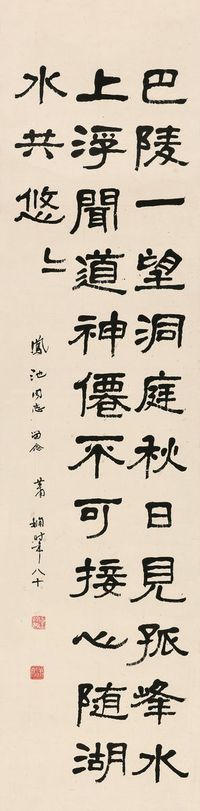 巴陵一望洞庭秋日見孤峰水
上浮聞道神僊不可接心随湖
水共悠〻
鳳池同志留念 蕭嫻時年八十